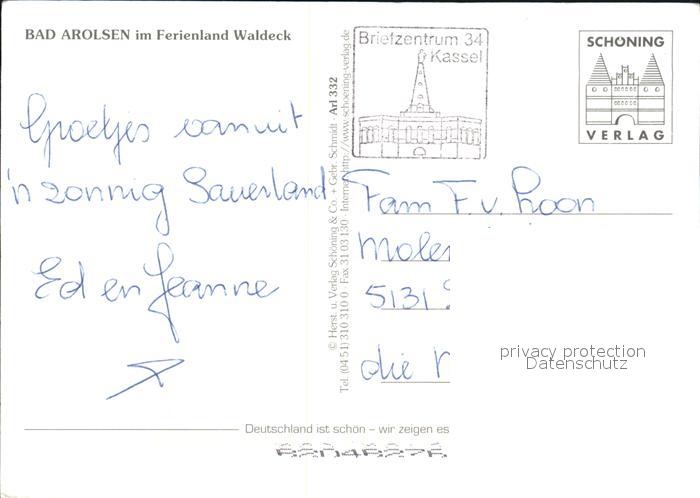 BAD AROLSEN im Ferienland Waldeck
Groetjes vanuit
'n zonnig Sauerland
Ed en Jeanne
© Herst. u. Verlag Schöning & Co. + Gebr. Schmidt · Arl 332
Tel. (04 51) 310 310 0 · Fax 31 03 130 · Internet: http://www.schoening-verlag.de
Briefzentrum 34
Kassel
SCHÖNING
VERLAG
Fam F. v. Loon
Mole
5131
die
privacy protection
Datenschutz
Deutschland ist schön – wir zeigen es